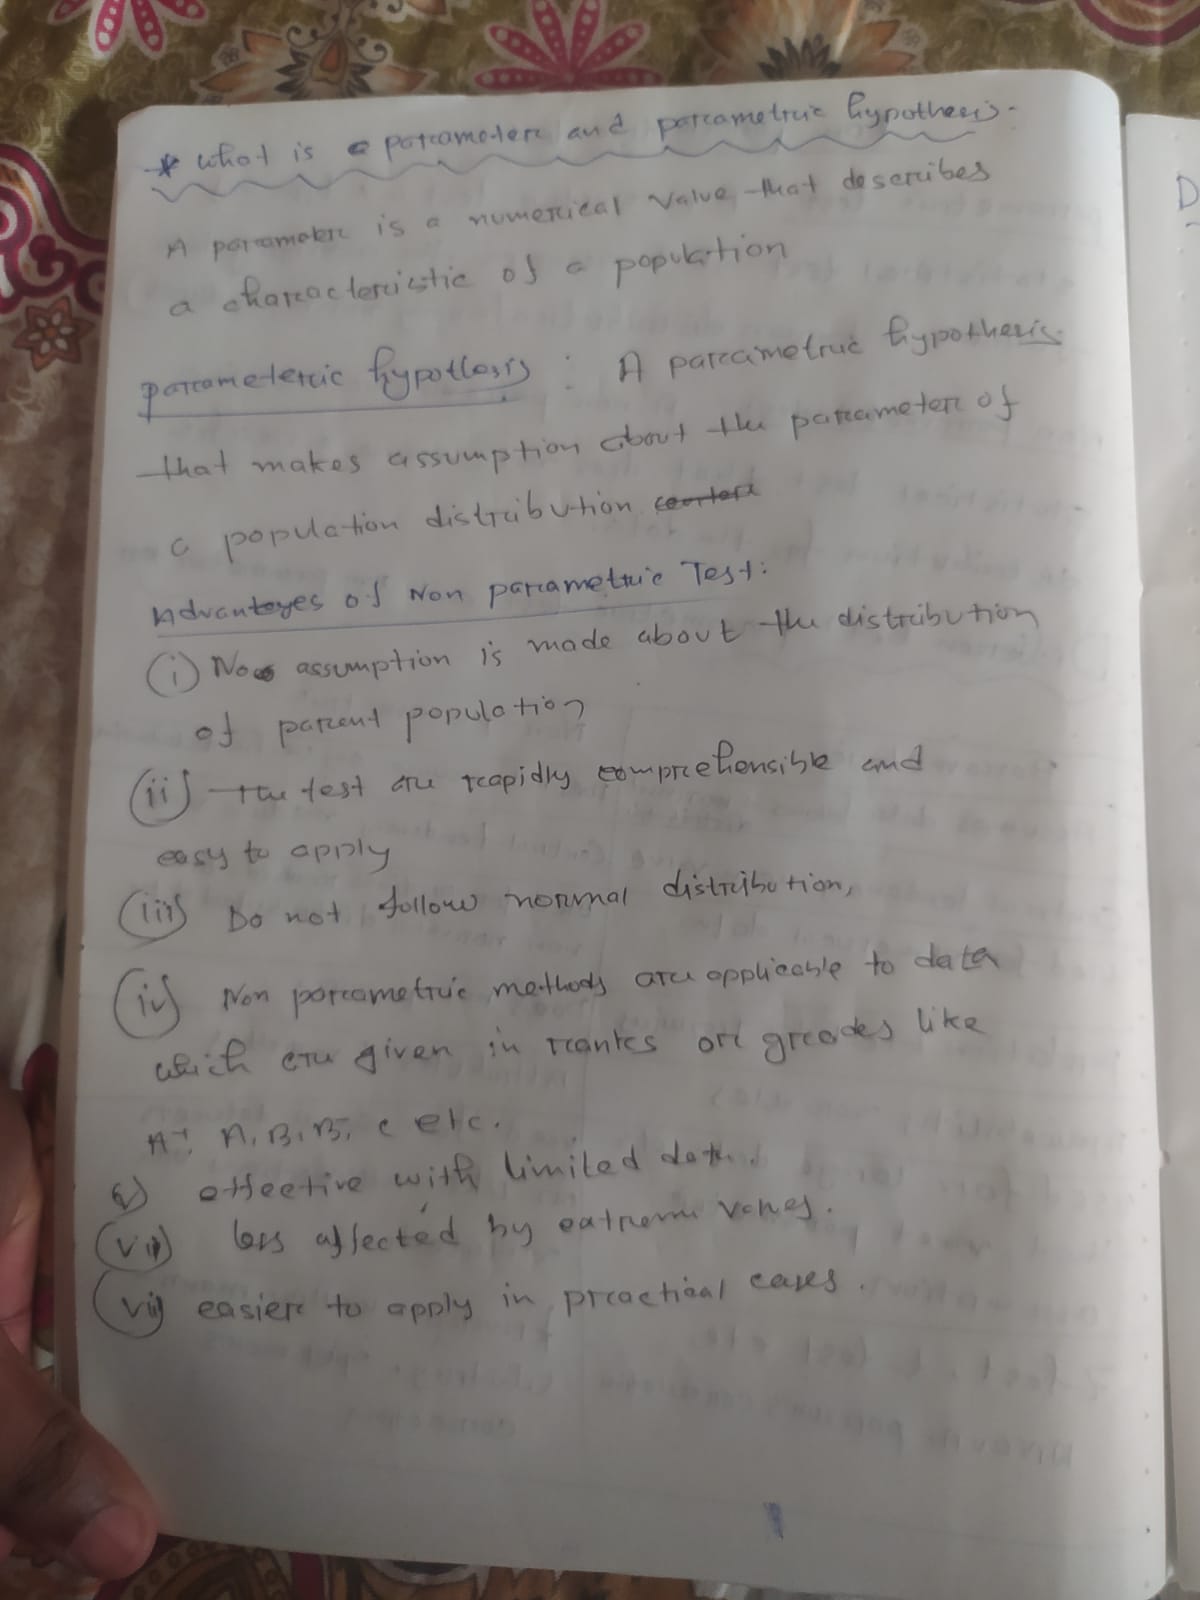 * What is a parameter and parametric hypothesis.
A parameter is a numerical value that describes
a characteristic of a population
parameteric hypothesis : A parametric hypothesis
that makes assumption about the parameter of
a population distribution
Advantages of Non parametric Test:
(i) No assumption is made about the distribution
of parent population
(ii) The test are rapidly comprehensible and
easy to apply
(iii) Do not follow normal distribution,
(iv) Non parametric methods are applicable to data
which are given in ranks or grades like
A+, A, B, B-, C etc.
v) effective with limited data.
(vi) less affected by extreme values.
(vii) easier to apply in practical cases.
D